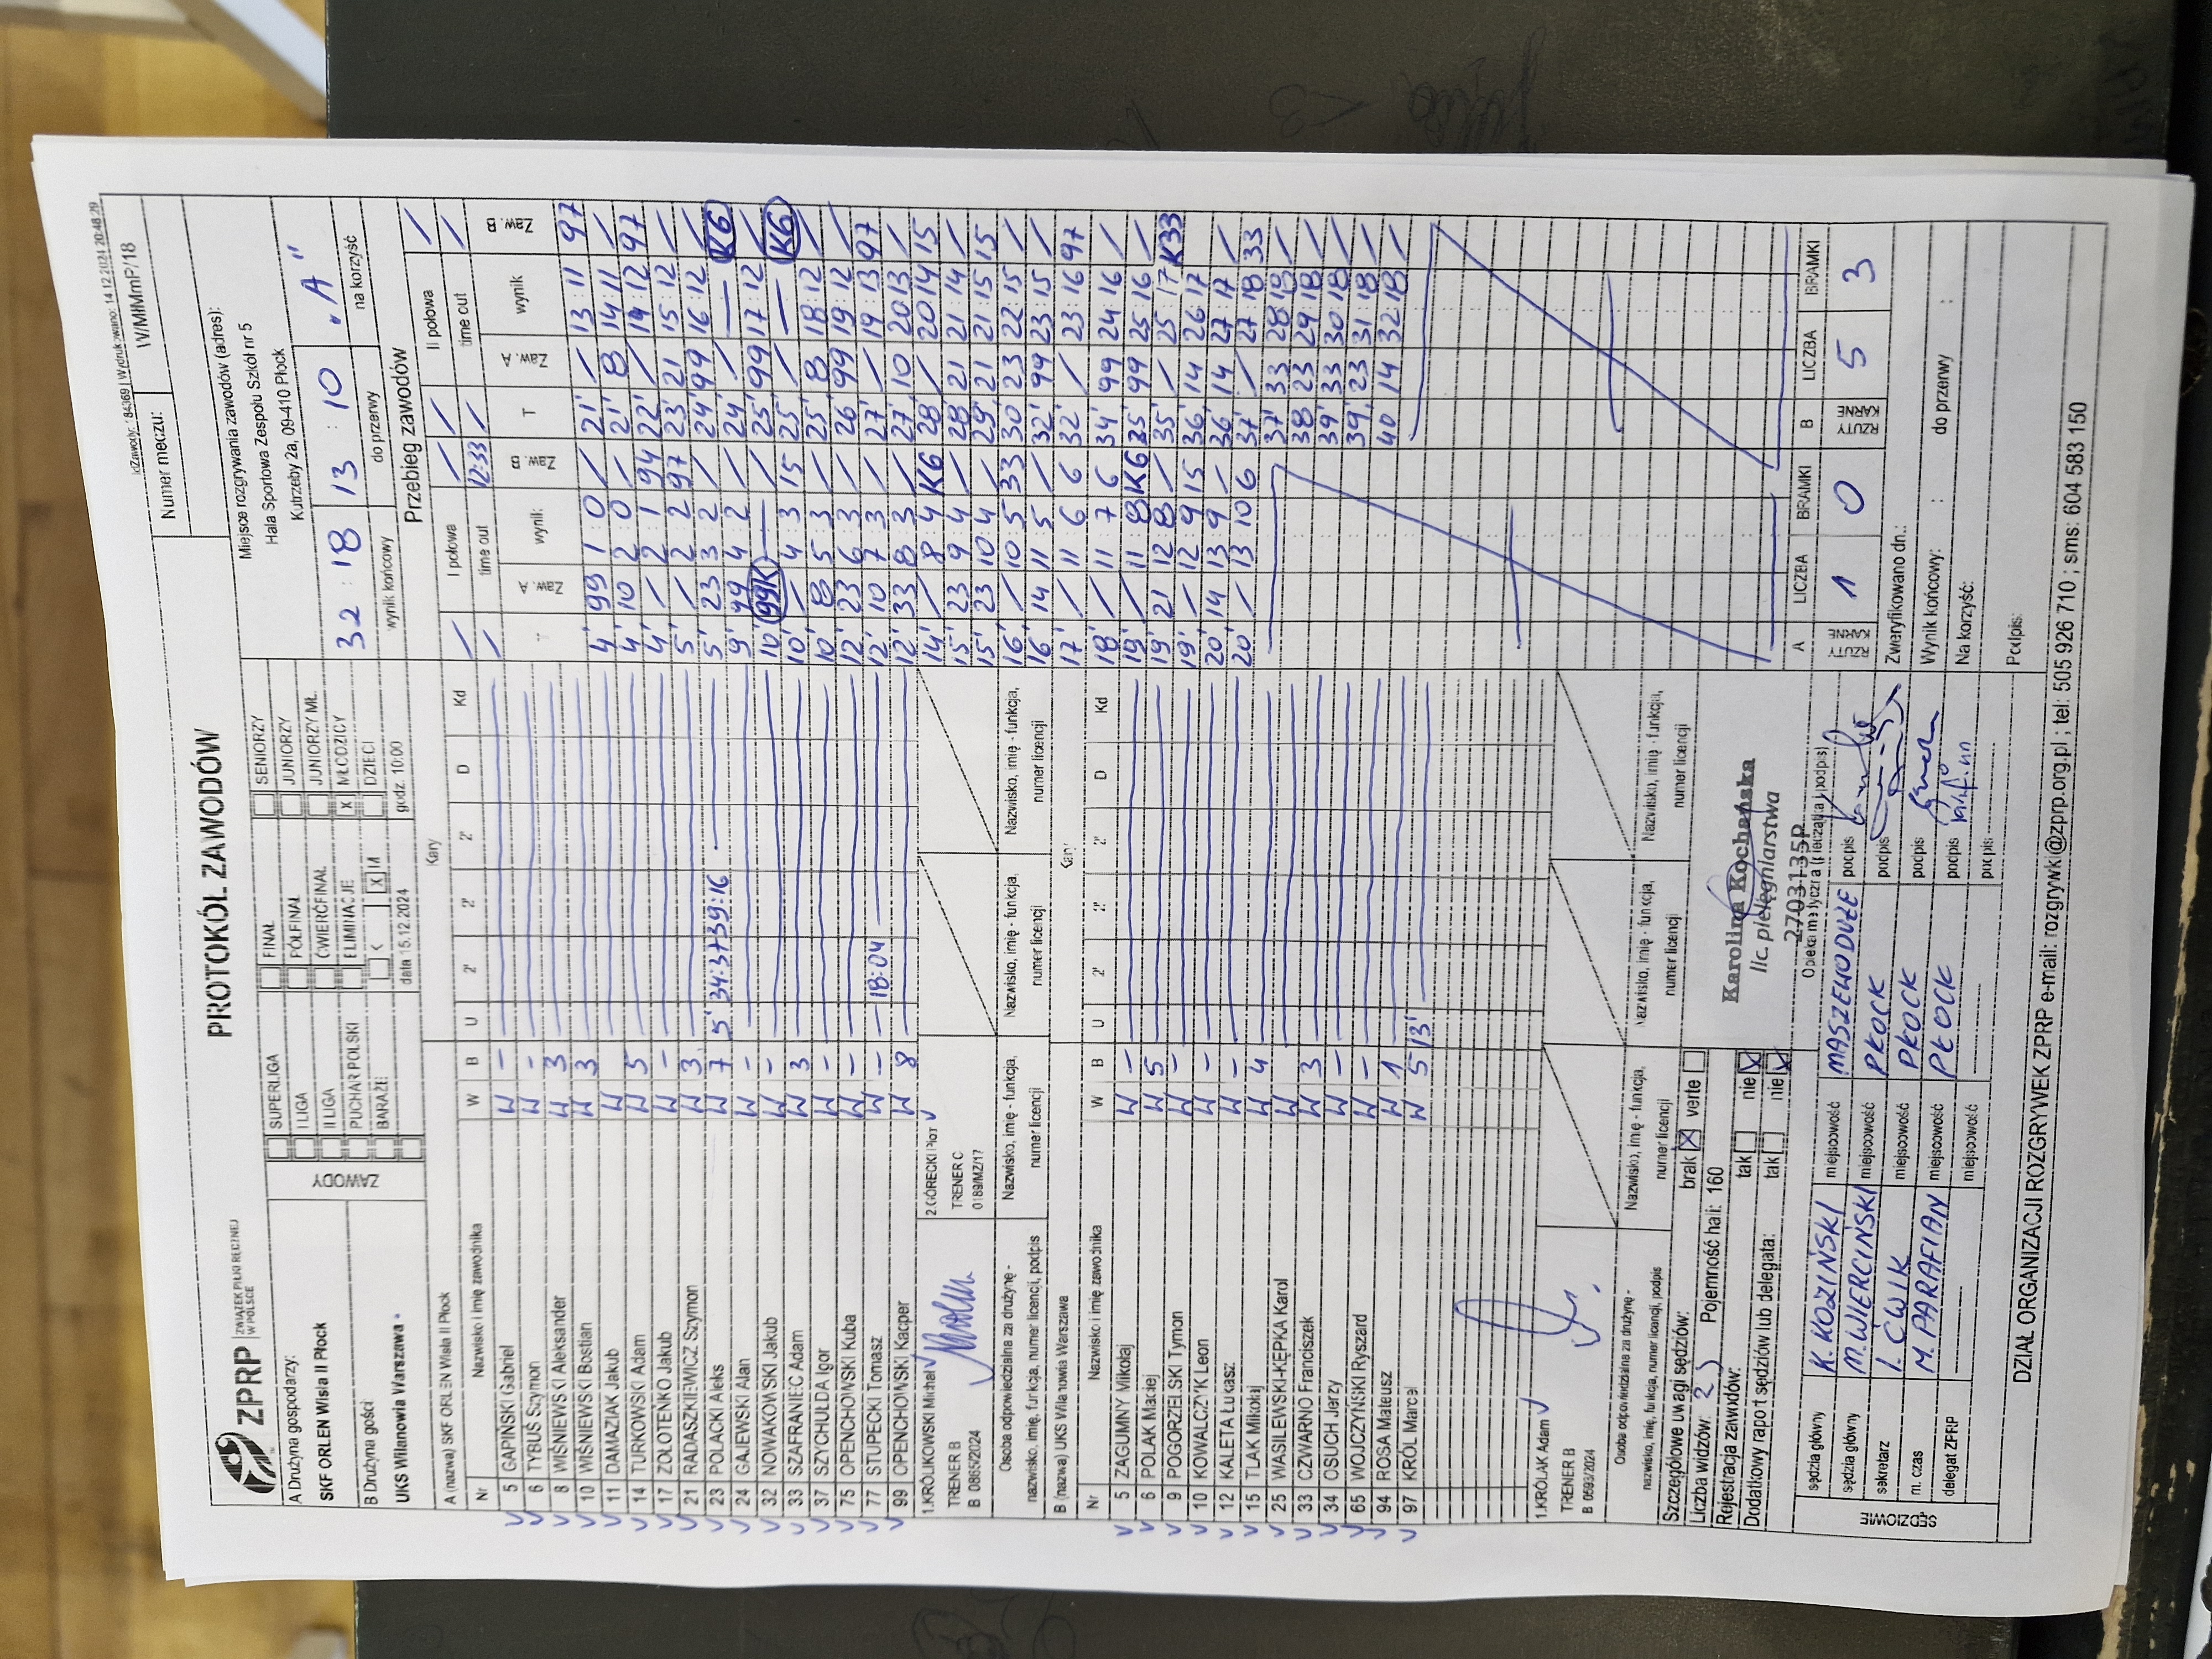 idZawody: 184369 | Wydrukowano: 14.12.2024 20:48:29
ZPRP ZWIĄZEK PIŁKI RĘCZNEJ W POLSCE
PROTOKÓŁ ZAWODÓW
Numer meczu: WM/MMmP/18
A Drużyna gospodarzy:
SKF ORLEN Wisła II Płock
B Drużyna gości:
UKS Wilanowia Warszawa
ZAWODY
SUPERLIGA
I LIGA
II LIGA
PUCHAR POLSKI
BARAŻE
FINAŁ
PÓŁFINAŁ
ĆWIERĆFINAŁ
ELIMINACJE
K X M
SENIORZY
JUNIORZY
JUNIORZY MŁ.
X MŁODZICY
DZIECI
data 15.12.2024 godz. 10:00
Miejsce rozgrywania zawodów (adres):
Hala Sportowa Zespołu Szkół nr 5
Kutrzeby 2a, 09-410 Płock
32 : 18 13 : 10 "A"
wynik końcowy do przerwy na korzyść
A (nazwa) SKF ORLEN Wisła II Płock Kary
Nr Nazwisko i imię zawodnika W B U 2' 2' 2' D Kd
5 GAPIŃSKI Gabriel W -
6 TYBUŚ Szymon W -
8 WIŚNIEWSKI Aleksander W 3
10 WIŚNIEWSKI Bostian W 3
11 DAMAZIAK Jakub W
14 TURKOWSKI Adam W 5
17 ZOŁOTEŃKO Jakub W -
21 RADASZKIEWICZ Szymon W 3
23 POLACKI Aleks W 7 5' 34:37 39:16
24 GAJEWSKI Alan W -
32 NOWAKOWSKI Jakub W -
33 SZAFRANIEC Adam W 3
37 SZYCHULDA Igor W -
75 OPENCHOWSKI Kuba W -
77 STUPECKI Tomasz W - 18:04
99 OPENCHOWSKI Kacper W 8
1.KRÓLIKOWSKI Michał 2 GÓRECKI Piotr
TRENER B TRENER C
B 0865/2024 0189/MZ/17
Osoba odpowiedzialna za drużynę - nazwisko, imię, funkcja, numer licencji, podpis
Nazwisko, imię - funkcja, numer licencji
Nazwisko, imię - funkcja, numer licencji
Nazwisko, imię - funkcja, numer licencji
B (nazwa) UKS Wilanowia Warszawa Kary
Nr Nazwisko i imię zawodnika W B U 2' 2' 2' D Kd
5 ZAGUMNY Mikołaj W -
6 POLAK Maciej W 5
9 POGORZELSKI Tymon W -
10 KOWALCZYK Leon W -
12 KALETA Łukasz W -
15 TLAK Mikołaj W 4
25 WASILEWSKI-KĘPKA Karol
33 CZWARNO Franciszek W 3
34 OSUCH Jerzy W -
65 WOJCZYŃSKI Ryszard W -
94 ROSA Mateusz W 1
97 KRÓL Marcel W 5 13'
1.KRÓLAK Adam
TRENER B
B 0593/2024
Osoba odpowiedzialna za drużynę - nazwisko, imię, funkcja, numer licencji, podpis
Nazwisko, imię - funkcja, numer licencji
Nazwisko, imię - funkcja, numer licencji
Nazwisko, imię - funkcja, numer licencji
Szczegółowe uwagi sędziów: brak X verte
Liczba widzów: 25 Pojemność hali: 160
Rejestracja zawodów: tak nie X
Dodatkowy raport sędziów lub delegata: tak nie X
Karolina Kochańska
lic. pielęgniarstwa
2703135P
Opieka medyczna (pieczątka i podpis)
SĘDZIOWIE
sędzia główny K. KOZIŃSKI miejscowość MASZEWO DUŻE podpis
sędzia główny M. WIERCIŃSKI miejscowość PŁOCK podpis
sekretarz I. ĆWIK miejscowość PŁOCK podpis
m. czas M. PARAFIAN miejscowość PŁOCK podpis
delegat ZPRP miejscowość podpis
Przebieg zawodów
I połowa II połowa
time out time out
12:33
T Zaw. A wynik Zaw. B
4' 99 1:0 /
4' 10 2:0 /
4' / 2:1 94
5' / 2:2 97
5' 23 3:2 /
9' 99 4:2 /
10' 99K — /
10' / 4:3 15
10' 8 5:3 /
12' 23 6:3 /
12' 10 7:3 /
12' 33 8:3 /
14' / 8:4 K6
15' 23 9:4 /
15' 23 10:4 /
16' / 10:5 33
16' 14 11:5 /
17' / 11:6 6
18' / 11:7 6
19' / 11:8 K6
19' 21 12:8 /
19' / 12:9 15
20' 14 13:9 /
20' / 13:10 6
T Zaw. A wynik Zaw. B
21' / 13:11 97
21' 8 14:11 /
22' / 14:12 97
23' 21 15:12 /
24' 99 16:12 /
24' / — K6
25' 99 17:12 /
25' / — K6
25' 8 18:12 /
26' 99 19:12 /
27' / 19:13 97
27' 10 20:13 /
28' / 20:14 15
28' 21 21:14 /
29' 21 21:15 15
30' 23 22:15 /
32' 99 23:15 /
32' / 23:16 97
34' 99 24:16 /
35' 99 25:16 /
35' / 25:17 K33
36' 14 26:17 /
36' 14 27:17 /
37' / 27:18 33
37' 33 28:18 /
38' 23 29:18 /
39' 33 30:18 /
39' 23 31:18 /
40' 14 32:18 /
A RZUTY KARNE LICZBA 1 BRAMKI 0
B RZUTY KARNE LICZBA 5 BRAMKI 3
Zweryfikowano dn.:
Wynik końcowy: : do przerwy :
Na korzyść:
Podpis:
DZIAŁ ORGANIZACJI ROZGRYWEK ZPRP e-mail: rozgrywki@zprp.org.pl ; tel: 505 926 710 ; sms: 604 583 150